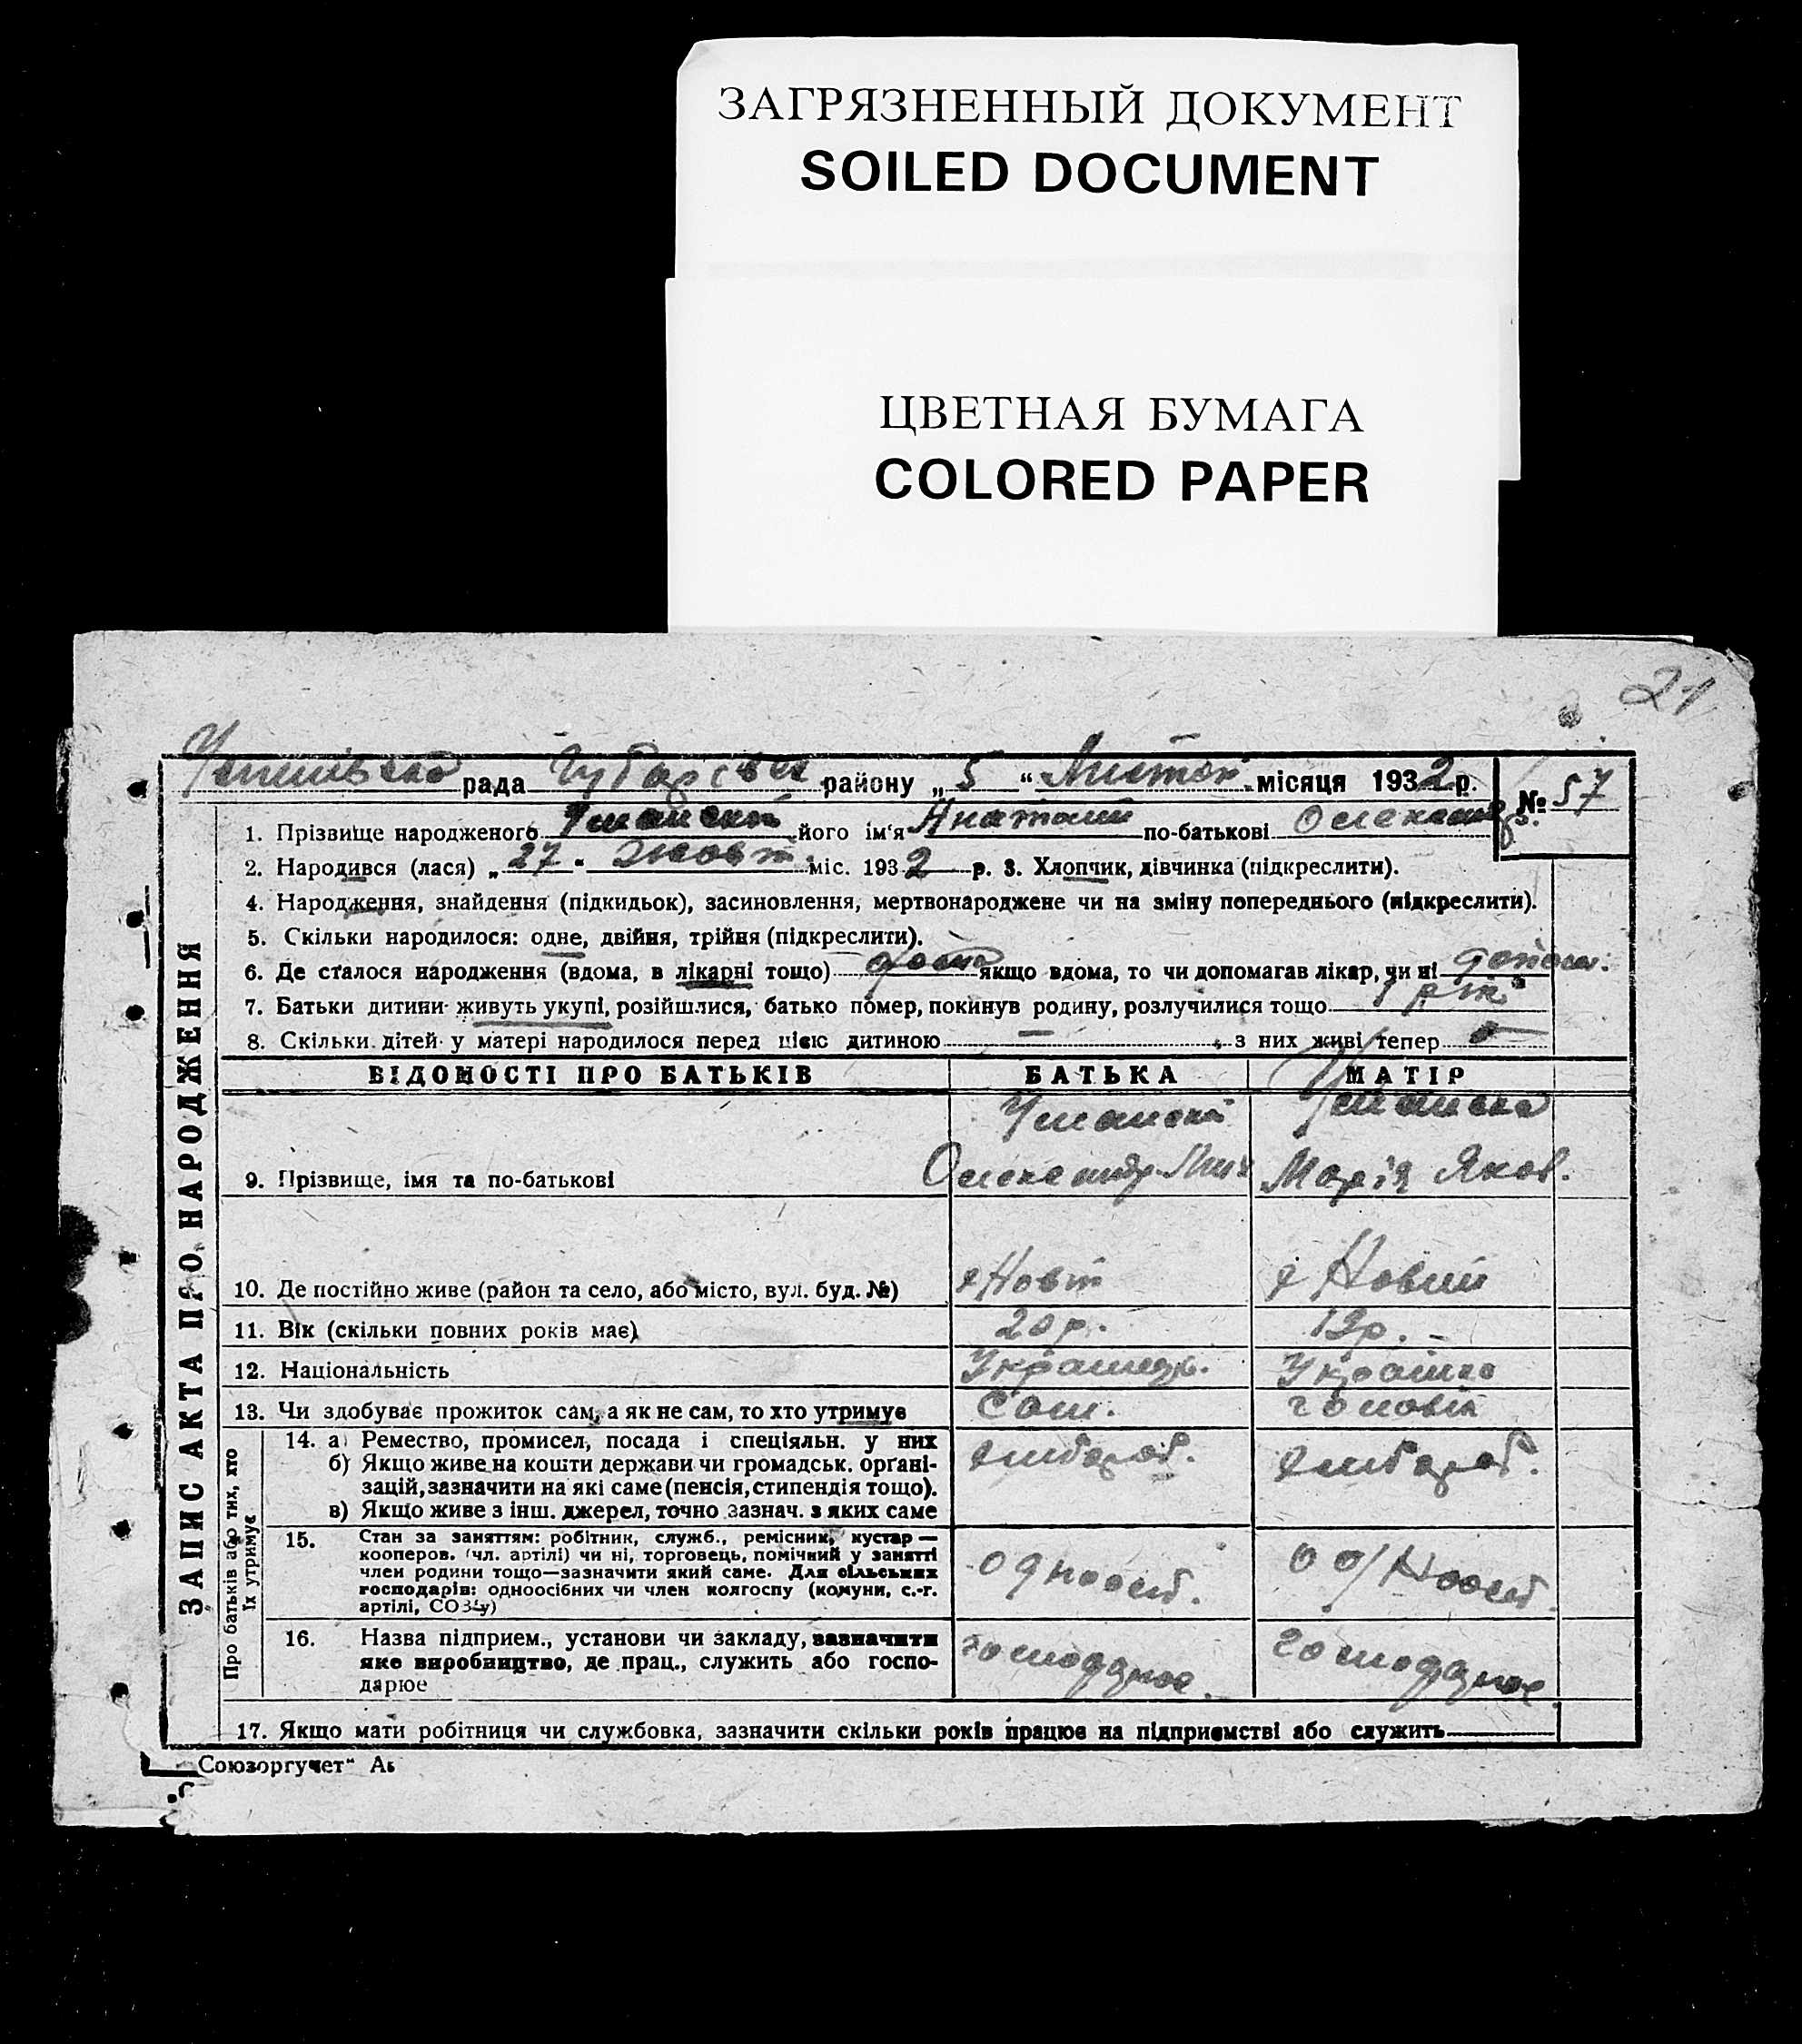 ЗАГРЯЗНЕННЫЙ ДОКУМЕНТ
SOILED DOCUMENT
ЦВЕТНАЯ БУМАГА
COLORED PAPER
21
рада району „ 5 “ Листоп місяця 1932 р. № 57
1. Прізвище народженого його ім'я Анатолій по-батькові
2. Народився (лася) „ 27 “ Жовт. міс. 1932 р. 3. Хлопчик, дівчинка (підкреслити).
4. Народження, знайдення (підкидьок), засиновлення, мертвонароджене чи на зміну попереднього (підкреслити).
5. Скільки народилося: одне, двійня, трійня (підкреслити).
6. Де сталося народження (вдома, в лікарні тощо) дома якщо вдома, то чи допомагав лікар, чи ні
7. Батьки дитини живуть укупі, розійшлися, батько помер, покинув родину, розлучилися тощо
8. Скільки дітей у матері народилося перед цією дитиною — з них живі тепер —
ВІДОМОСТІ ПРО БАТЬКІВ БАТЬКА МАТІР
9. Прізвище, імя та по-батькові Олександр Марія Яков.
10. Де постійно живе (район та село, або місто, вул. буд. №)
11. Вік (скільки повних років має) 20 р. 19 р.
12. Національність Українець. Українка
13. Чи здобуває прожиток сам, а як не сам, то хто утримує Сам. чоловік
14. а) Ремество, промисел, посада і спеціяльн. у них хлібороб. хлібороб.
б) Якщо живе на кошти держави чи громадськ. органі-
зацій, зазначити на які саме (пенсія, стипендія тощо).
в) Якщо живе з інш. джерел, точно зазнач. з яких саме
15. Стан за заняттям: робітник, служб., ремісник, кустар —
кооперов. (чл. артілі) чи ні, торговець, помічний у занятті
член родини тощо—зазначити який саме. Для сільських
господарів: одноосібних чи член колгоспу (комуни, с.-г.
артілі, СОЗ'у) одноосіб. одноосіб.
16. Назва підприєм., установи чи закладу, зазначити
яке виробництво, де прац., служить або госпо-
дарює
17. Якщо мати робітниця чи службовка, зазначити скільки років працює на підприємстві або служить
ЗАПИС АКТА ПРО НАРОДЖЕННЯ
Про батьків або тих, хто
їх утримує
Союзоргучет“